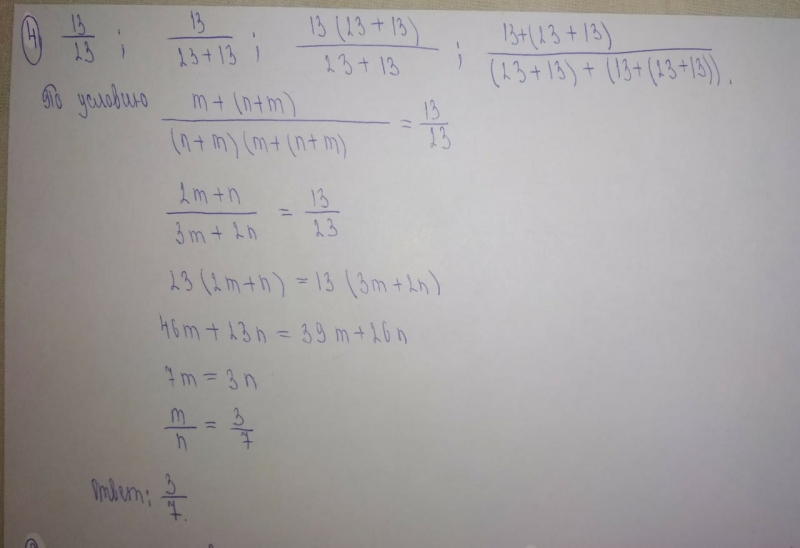 ④ 13/23 ; 13/(23+13) ; 13(23+13)/(23+13) ; 13+(23+13)/((23+13)+(13+(23+13))).
По условию m+(n+m)/(n+m)(m+(n+m)) = 13/23
2m+n/3m+2n = 13/23
23(2m+n) = 13(3m+2n)
46m+23n = 39m+26n
7m = 3n
m/n = 3/7
Ответ: 3/7.